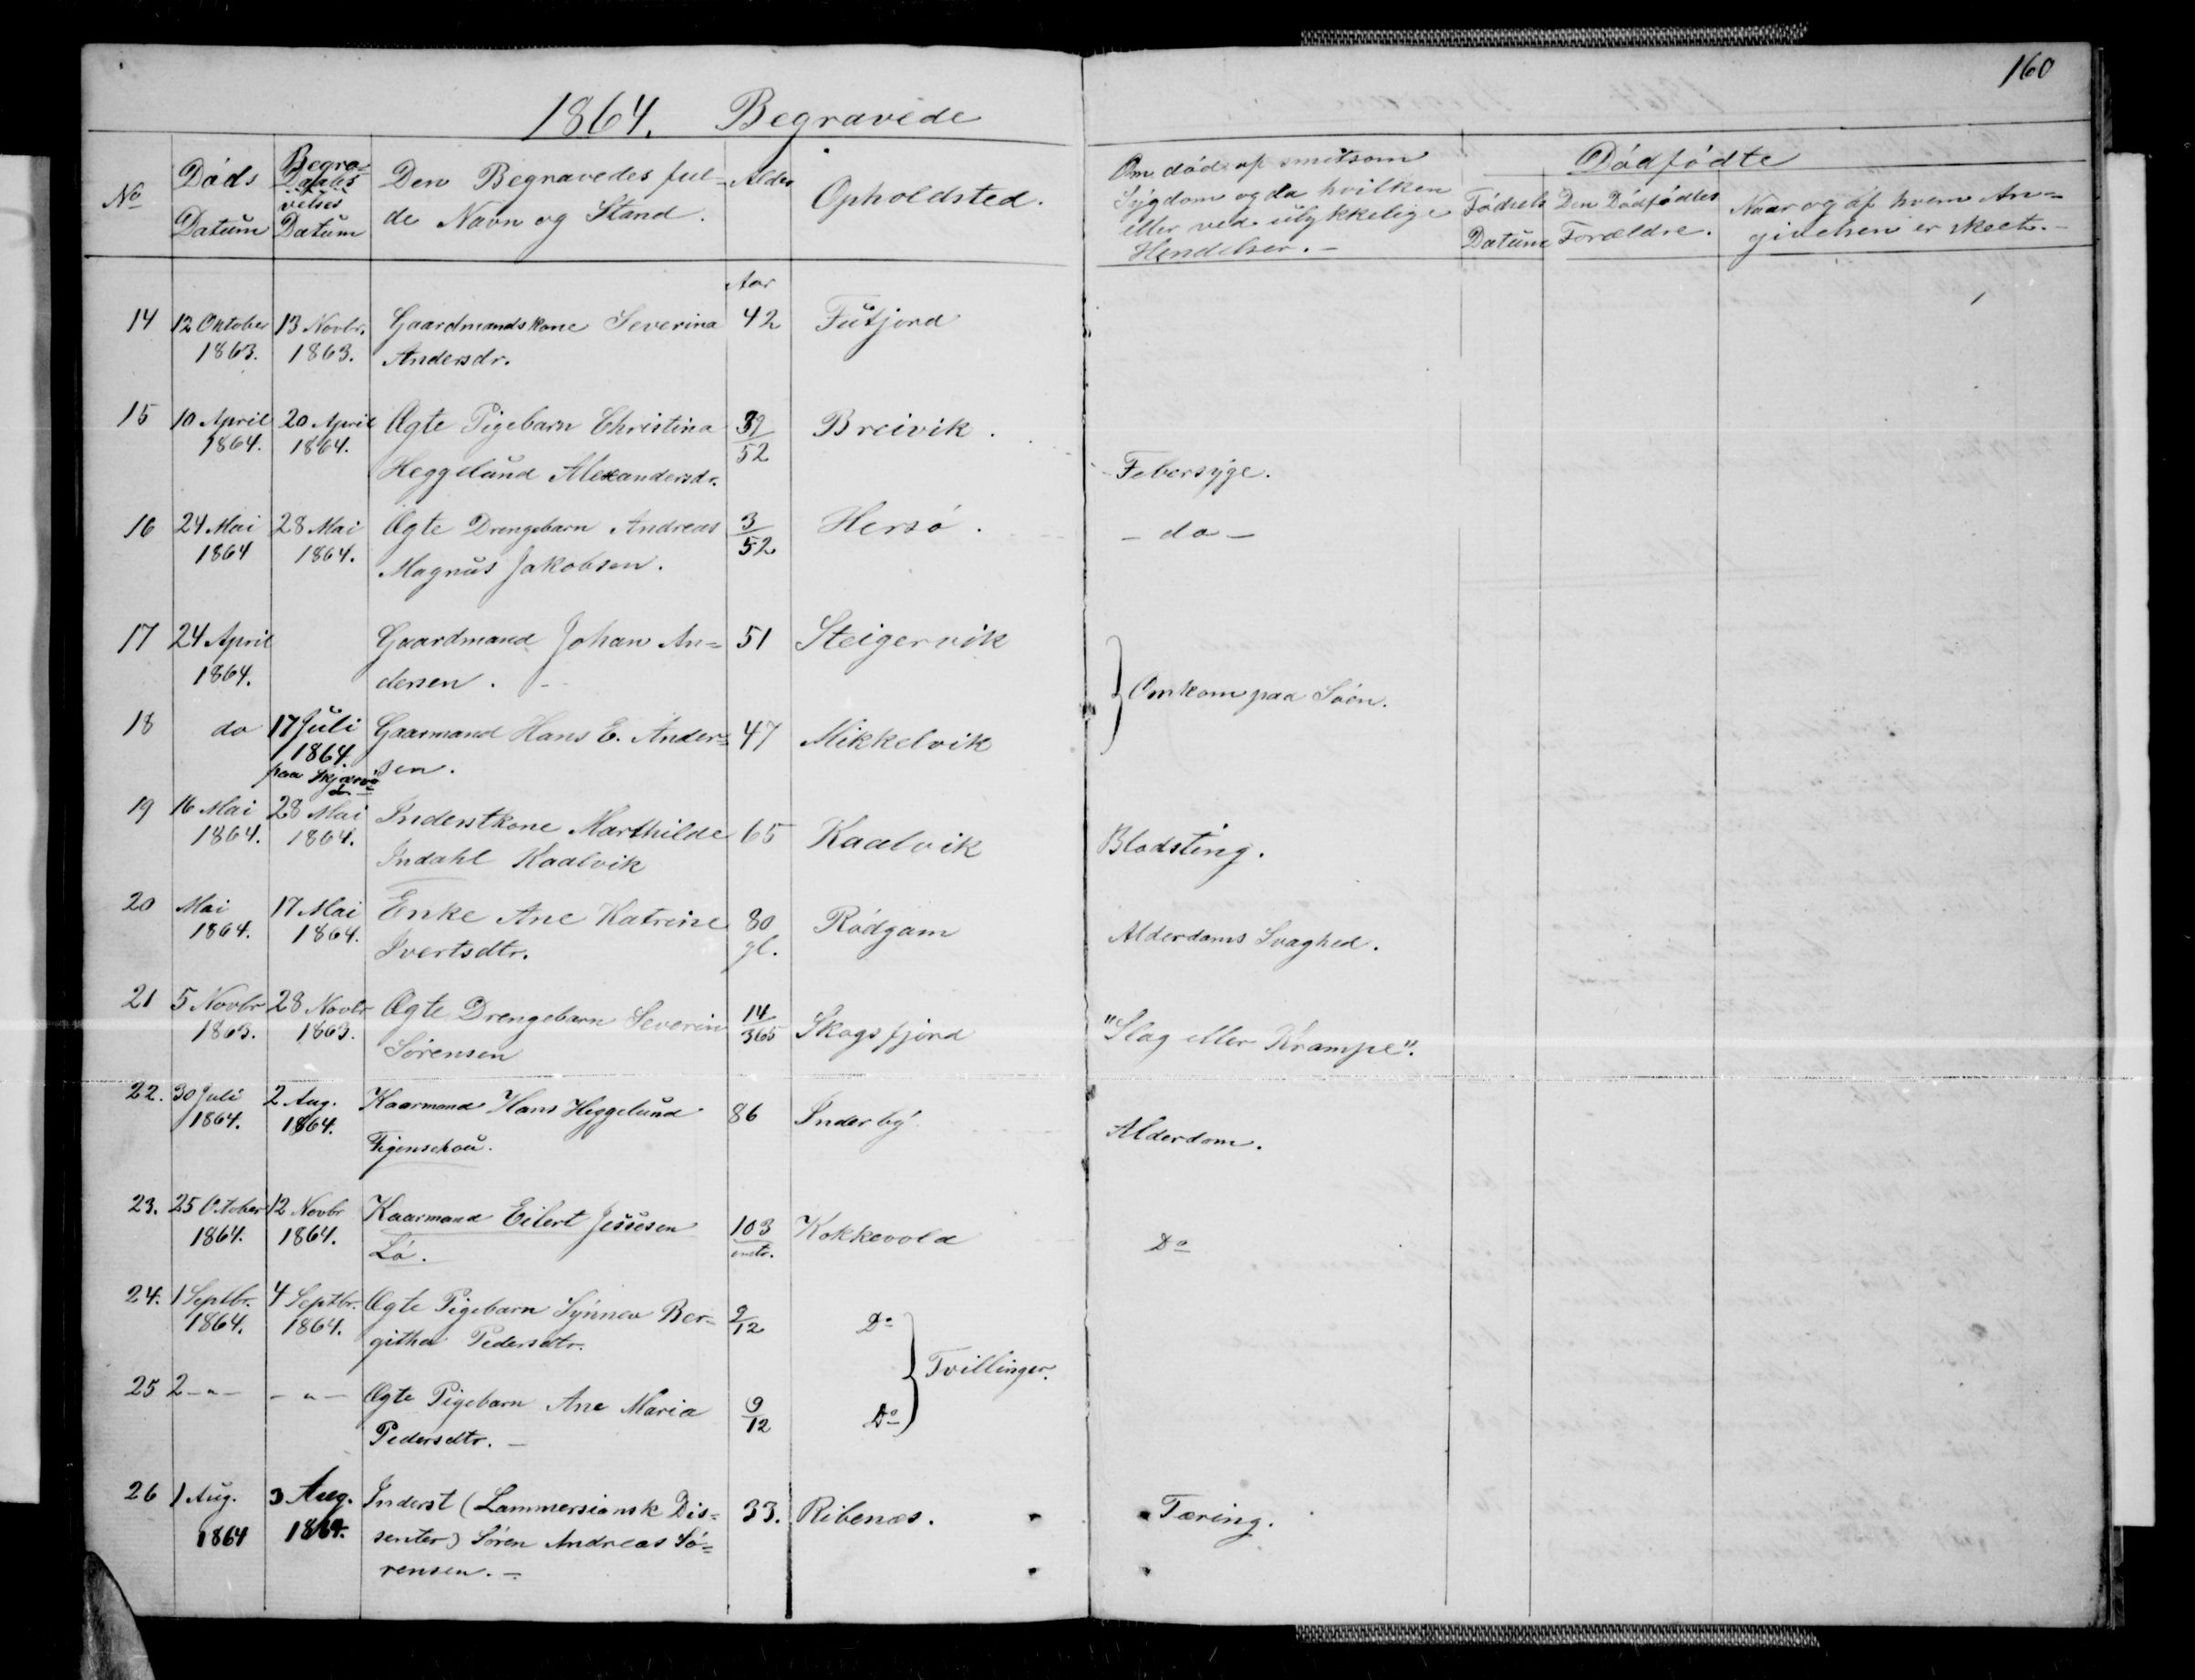 160
1864. Begravede
No
Døds Datum
Begravelses Datum
Den Begravedes fulde Navn og Stand.
Alder
Opholdsted.
Om død af smitsom
Sygdom og da hvilken
eller ved ulykkelige
Hendelser. –
Dødfødte
Fødsels Datum
Den Dødfødtes Forældre.
Naar og af hvem An=
givelsen er skeet. –
Aar
14 12 Oktober 13 Novbr. Gaardmandskone Severina 42 Futjord
1863. 1863. Andersdr.
15 10 April 20 April Ægte Pigebarn Christina 39/52 Breivik.
1864. 1864. Heggelund Alexandersdr. Febersyge.
16 24 Mai 28 Mai Ægte Drengebarn Andreas 3/52 Hersø. – do –
1864 1864. Magnus Jakobsen.
17 24 April Gaardmand Johan An= 51 Steigervik
1864. dersen. –
Omkom paa Søen.
18 do 17 Juli Gaarmand Hans E. Ander= 47 Mikkelvik
1864. sen.
paa Skjærvø
19 16 Mai 28 Mai Inderstkone Marthilde 65 Kaalvik Blodsting.
1864. 1864. Indahl Kaalvik
20 Mai 17 Mai Enke Ane Katrine 80 Rødgam Alderdoms Svaghed.
1864. 1864. Ivertsdtr. gl.
21 5 Novbr 28 Novbr Ægte Drengebarn Severin 14/365 Skogsfjord "Slag eller Krampe".
1863. 1863. Sørensen
22. 30 Juli 2 Aug. Kaarmand Hans Heggelund 86 Inderby Alderdom.
1864. 1864. Figenschou.
23. 25 October 12 Novbr Kaarmand Eilert Jessesen 103 Kokkevold Do
1864. 1864. Lø.
24. 1 Septbr. 4 Septbr. Ægte Pigebarn Synnev Ber= 9/12 Do
1864. 1864. githa Pedersdtr.
Tvillinger.
25 2 –"– –"– Ægte Pigebarn Ane Maria 9/12 Do
Pedersdtr. –
26 1 Aug. 3 Aug. Inderst (Lammersiansk Dis= 33. Ribenæs. Tæring.
1864 1864. senter) Søren Andreas Sø=
rensen. –